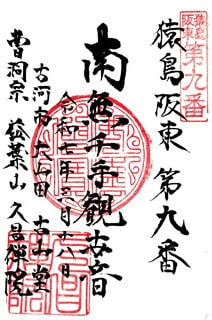 猿島
阪東
第九番
猿島阪東 第九番
南無千手観世音
令和七年 月十八日
古河市 大山田 古山堂
曹洞宗 葉山 久昌禅院